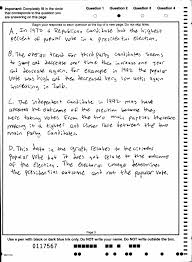 Important: Completely fill in the circle that corresponds to the question you are answering in this booklet.
Question 1 Question 2 Question 3 Question 4
Begin your response to each question at the top of a new page. Do not skip lines.
A. In 1972 a Republican candidate had the highest percent of popular vote in a presidential election.
B. The overall trend for third party candidates seems to
decrease over time then increase one year
and decrease again, for example in 1992 the popular
vote was high and then decreased very low until again
increasing in
C. The independent candidate in 1992 may have
affected the outcome of the election because they
were taking votes from the two main parties therefore
making it a tighter and closer race between the two
main party candidates.
D. This data in the graph relates to the citizens
popular vote but it does not relate to the outcome
of the election. The electoral college determines
the presidential outcome and not the popular vote.
Page 2
Use a pen with black or dark blue ink only. Do NOT write your name. Do NOT write outside the box.
0117567